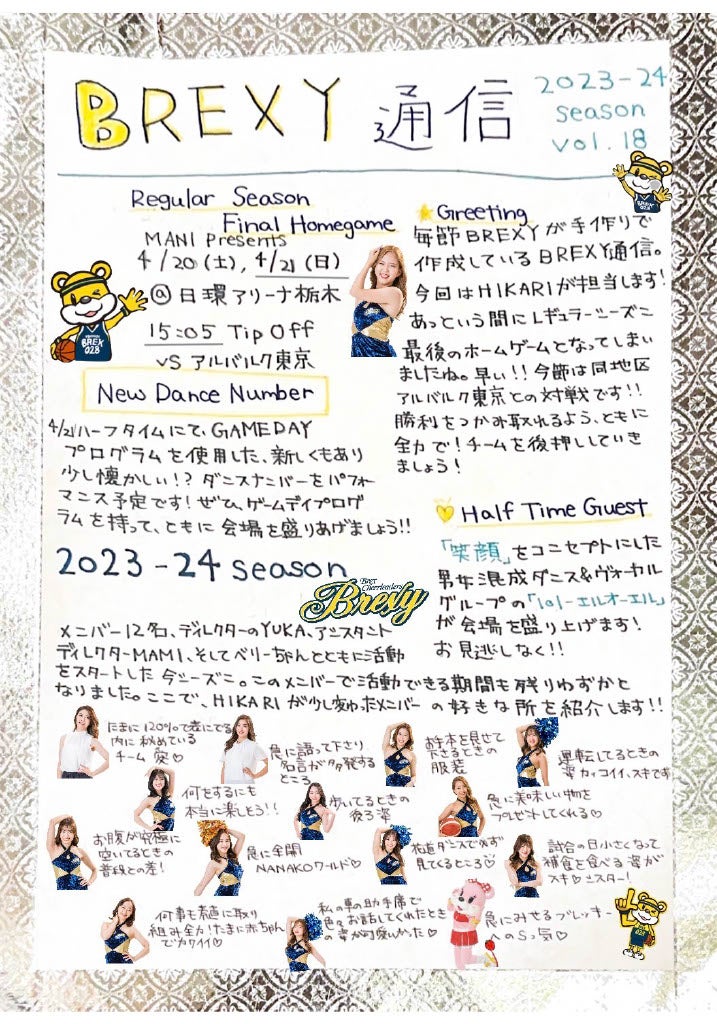 BREXY 通信
2023-24
season
vol.18
Regular Season
Final Homegame
MANI Presents
4/20(土), 4/21(日)
@日環アリーナ栃木
15:05 Tip Off
vs アルバルク東京
New Dance Number
4/21ハーフタイムにて、GAMEDAY
プログラムを使用した、新しくもあり
少し懐かしい!? ダンスナンバーをパフォー
マンス予定です!ぜひ、ゲームデイプログ
ラムを持って、ともに会場を盛りあげましょう!!
Greeting
毎節BREXYが手作りで
作成しているBREXY通信。
今回はHIKARIが担当します!
あっという間にレギュラーシーズン
最後のホームゲームとなってしまい
ましたね。早い!!今節は同地区
アルバルク東京との対戦です!!
勝利をつかみ取れるよう、ともに
全力で!チームを後押ししていき
ましょう!
Half Time Guest
「笑顔」をコンセプトにした
男女混成ダンス&ヴォーカル
グループの「lol-エルオーエル」
が会場を盛り上げます!
お見逃しなく!!
2023-24 season
Brex
Cheerleaders
Brexy
メンバー12名、ディレクターのYUKA、アシスタント
ディレクターMAMI、そしてベリーちゃんとともに活動
をスタートした今シーズン。このメンバーで活動できる期間も残りわずかと
なりました。ここで、HIKARIが少し変わったメンバーの好きな所を紹介します!!
たまに120%で表にでる
内に秘めている
チーム愛♡
急に語って下さり
名言が多発する
ところ
お手本を見せて
下さるときの
服装
運転してるときの
姿カッコイイ、スキです
何をするにも
本当に楽しそう!!
歩いてるときの
後ろ姿
急に美味しい物を
プレゼントしてくれる♡
お腹が究極に
空いてるときの
普段との差!
急に全開
NANAKOワールド♡
花道ダンスで必ず
見てくるところ♡
試合の日小さくなって
補食を食べる姿が
スキ♡
何事も素直に取り
組み全力!たまに赤ちゃん
でカワイイ♡
私の車の助手席で
色々お話してくれたとき
の姿が可愛いかった♡
急にみせるブレッキー
へのSっ気♡
BREX
028